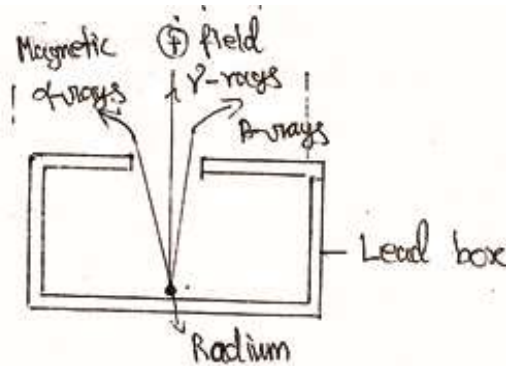 Magnetic ⊕ field
α-rays γ-rays
β-rays
Lead box
Radium